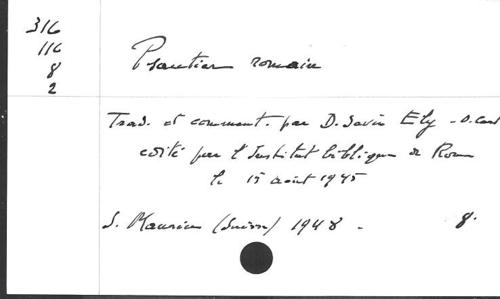 316
116
8
2
Psautier romain
Trad. et comment. par D. Savin Ely - O. Cart
édité par l'Institut biblique de Rome
le 15 août 1945
S. Maurice (Suisse) 1948 - 8.